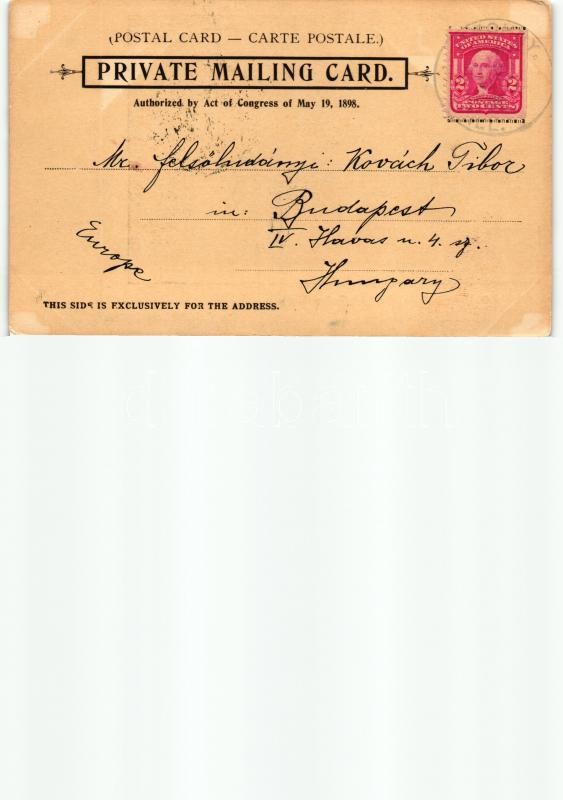 (POSTAL CARD — CARTE POSTALE.)
PRIVATE MAILING CARD.
Authorized by Act of Congress of May 19, 1898.
UNITED STATES
OF AMERICA
2 2
POSTAGE
TWO CENTS
Mr. felsőludányi: Kovách Tibor
in: Budapest
IV. Havas u. 4. sz.
Europe
Hungary
THIS SIDE IS EXCLUSIVELY FOR THE ADDRESS.
darabanth